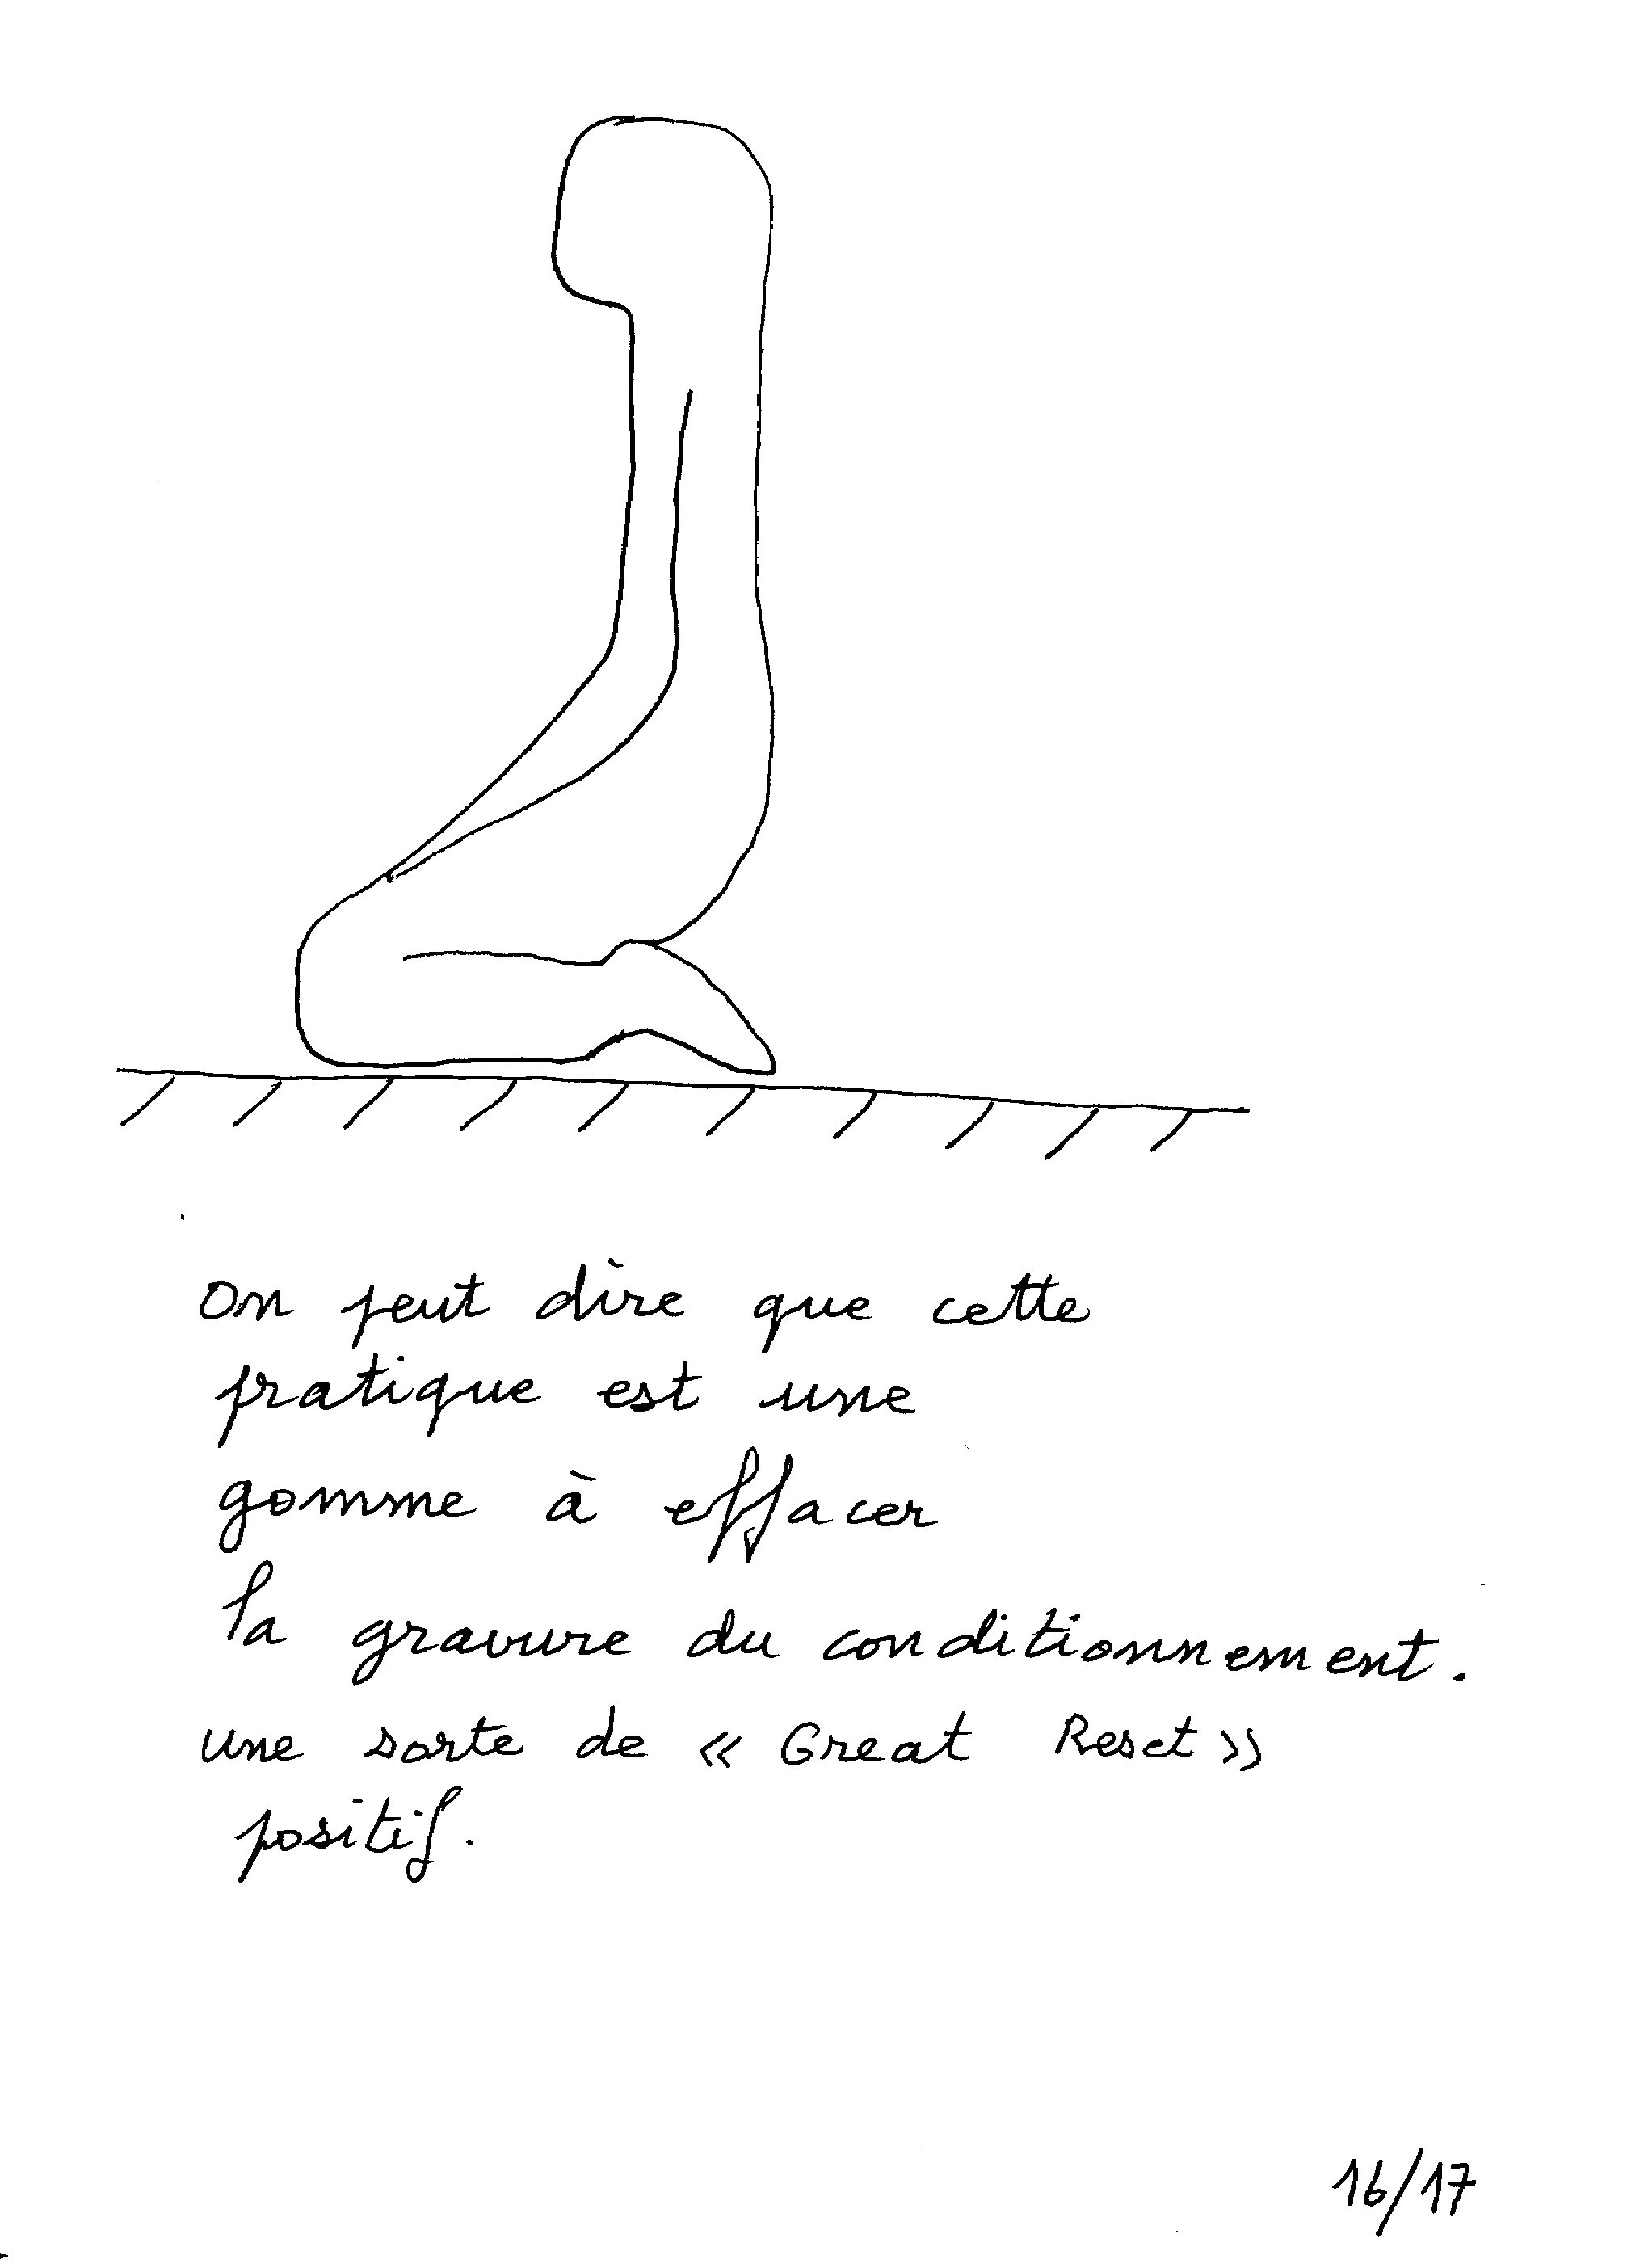 On peut dire que cette
pratique est une
gomme à effacer
la gravure du conditionnement.
une sorte de « Great Reset »
positif.
16/17